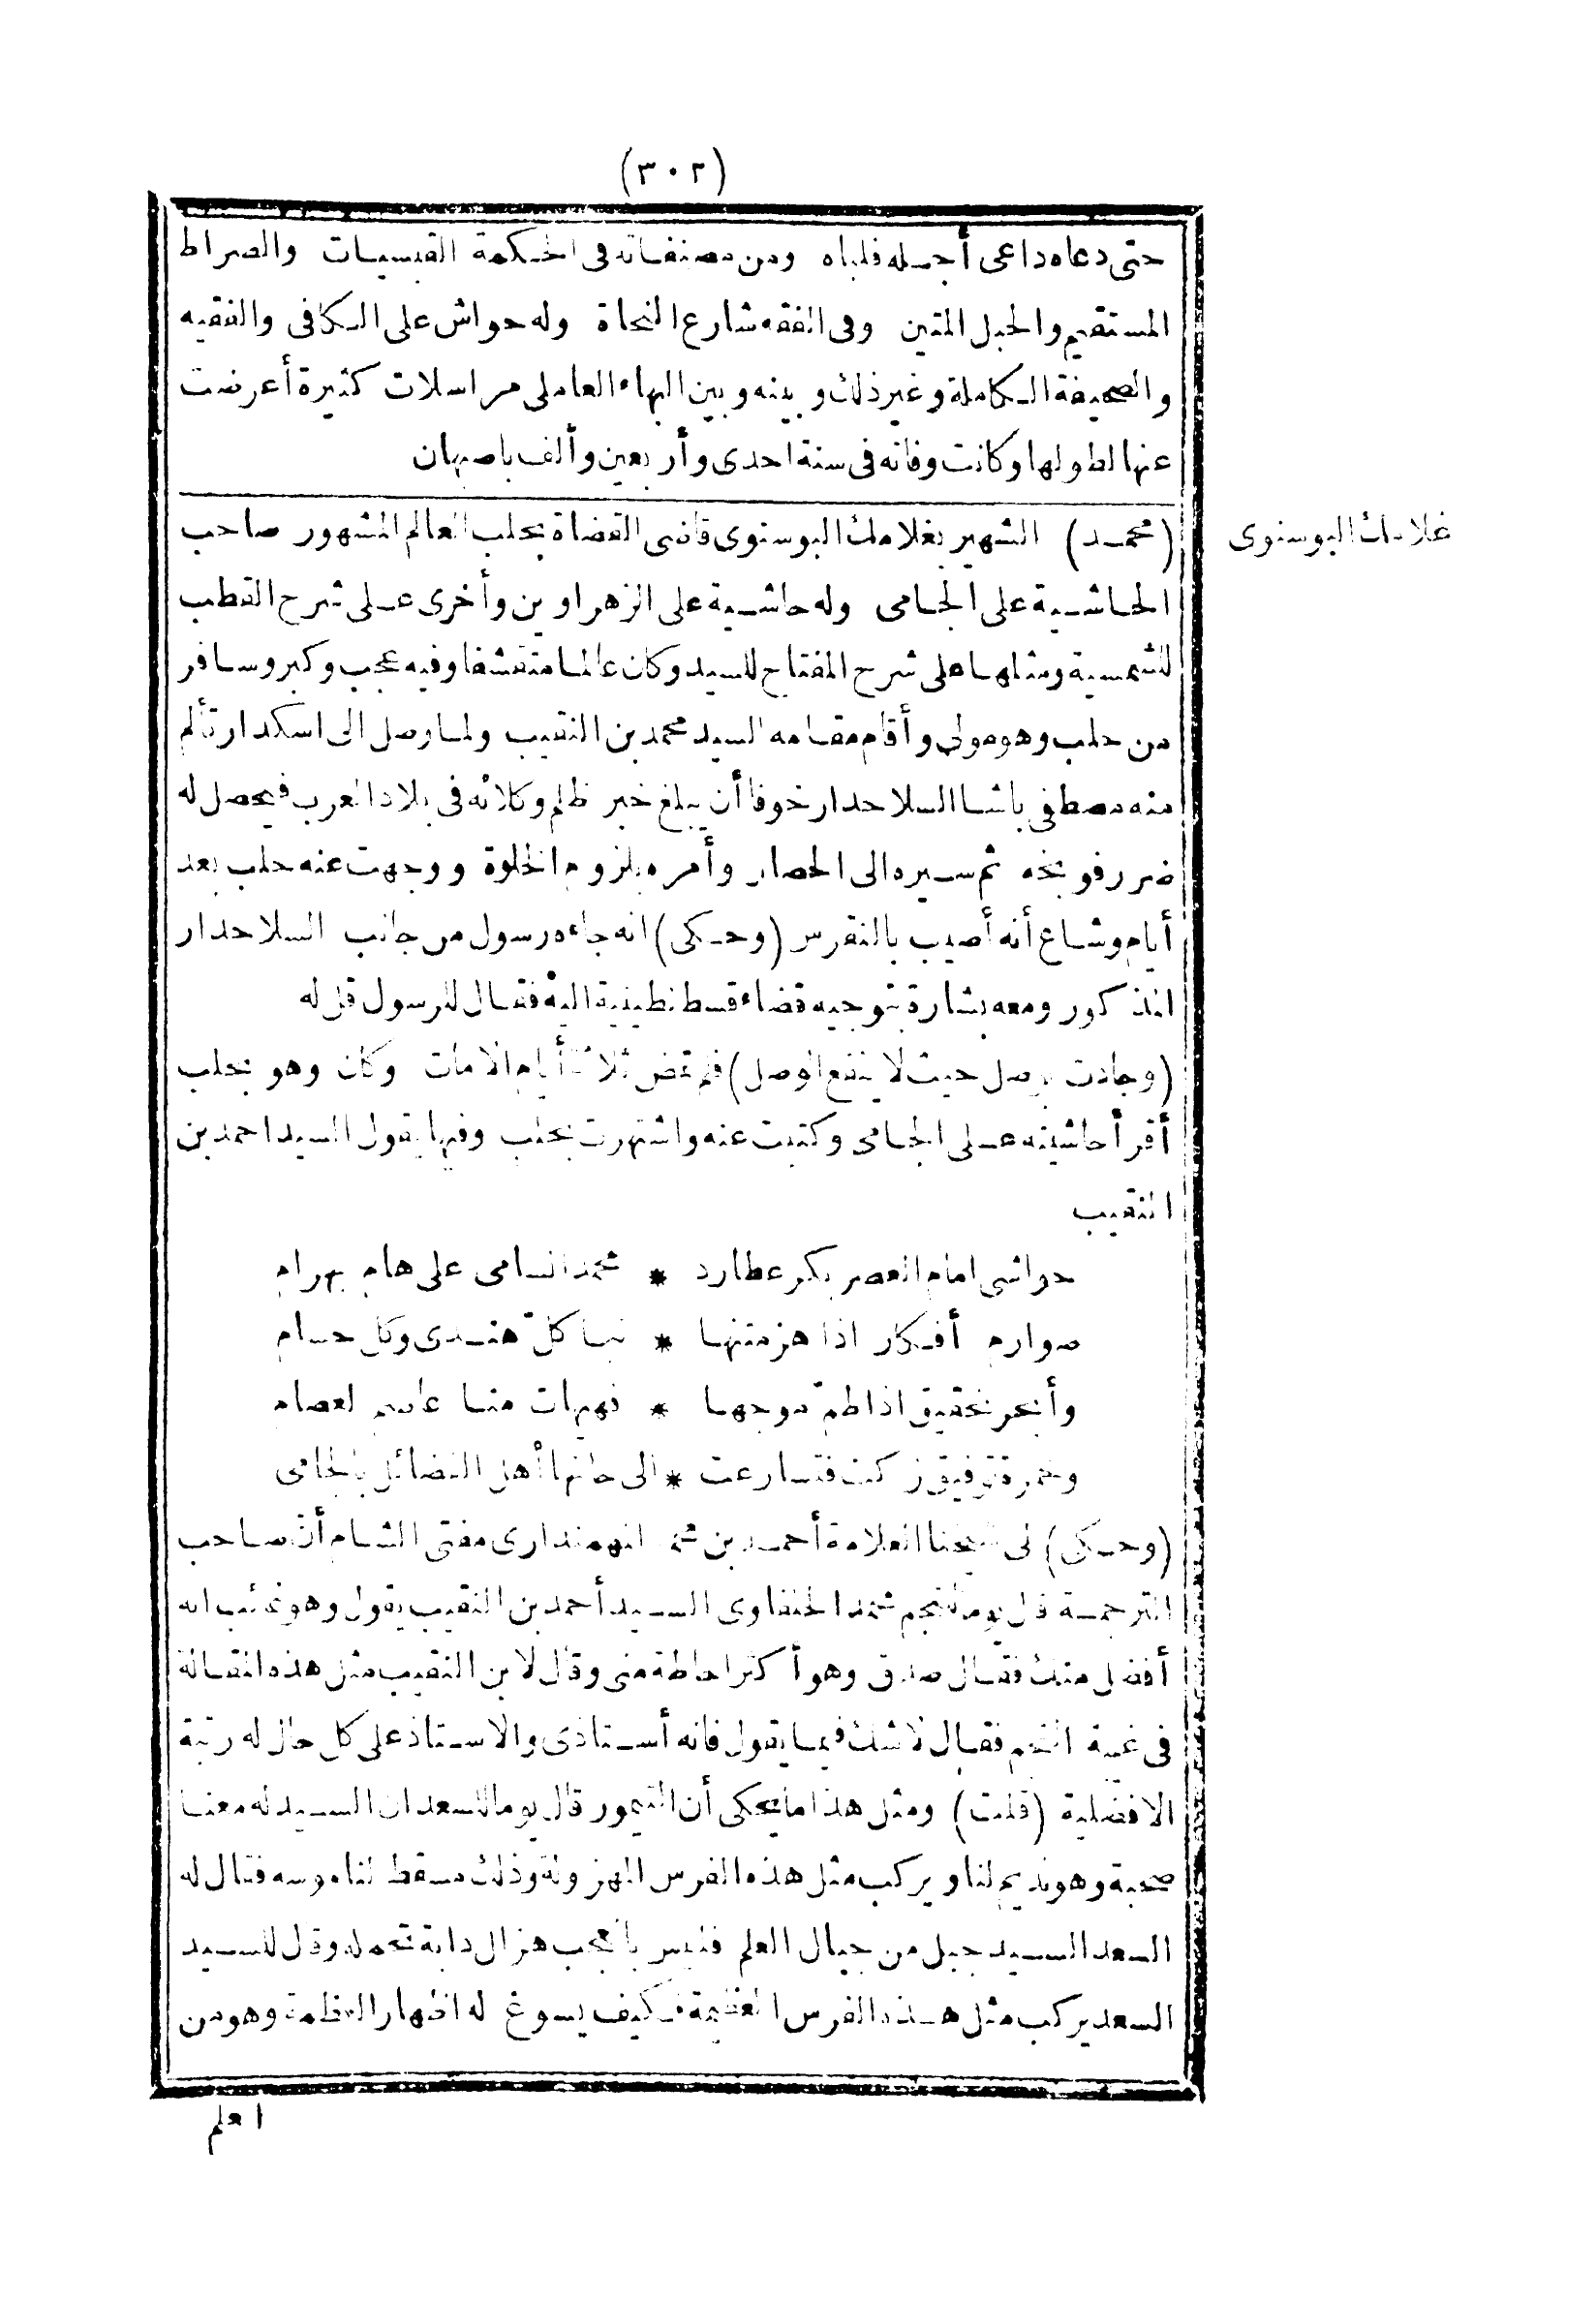 (٣٠٢)
حتى دعاه داعى أجله فلباه ومن مصنفاته فى الحكمة القبسيات والصراط
المستقيم والحبل المتين وفى الفقه شارع النجاة وله حواش على الكافى والفقيه
والصحيفة الكاملة وغير ذلك وبينه وبين البهاء العاملى مراسلات كثيرة أعرضت
عنها لطولها وكانت وفاته فى سنة احدى وأربعين وألف باصبهان
غلامك البوسنوى
(محمد) الشهير بغلامك البوسنوى قاضى القضاة بحلب العالم المشهور صاحب
الحاشية على الجامى وله حاشية على الزهراوين وأخرى على شرح القطب
للشمسية ومثلها على شرح المفتاح للسيد وكان عالما متقشفا وفيه عجب وكبر وسافر
من حلب وهو مولى وأقام مقامه السيد محمد بن النقيب ولما وصل الى اسكدار تألم
منه مصطفى باشا السلاحدار خوفا أن يبلغ خبر ظلم وكلائه فى بلاد العرب فيحصل له
ضرر فوبخه ثم سيره الى الحصار وأمره بلزوم الخلوة ووجهت عنه حلب بعد
أيام وشاع أنه أصيب بالنقرس (وحكى) انه جاءه رسول من جانب السلاحدار
المذكور ومعه بشارة بتوجيه قضاء قسطنطينية اليه فقال للرسول قل له
(وجادت بوصل حيث لا ينفع الوصل) فلم تمض ثلاثة أيام الا مات وكان وهو بحلب
أقرأ حاشيته على الجامى وكتبت عنه واشتهرت بحلب وفيها يقول السيد احمد بن
النقيب
حواشى امام العصر بكر عطارد * محمد السامى على هام بهرام
صوارم أفكار اذا هز متنها * نبا كل هندى وكل حسام
وأبحر تحقيق اذا طم موجها * فهيهات منها عاصم لعصام
وخمرة توفيق زكت فتسارعت * الى حانها أهل الفضائل بالجامى
(وحكى) لى شيخنا العلامة أحمد بن محمد المهمندارى مفتى الشام أن صاحب
الترجمة قال يوما للنجم محمد الحلفاوى السيد أحمد بن النقيب يقول وهو غائب انه
أفضل منك فقال صدق وهو أكثر احاطة منى وقال لابن النقيب مثل هذه المقالة
فى غيبة النجم فقال لا شك فيما يقول فانه أستاذى والاستاذ على كل حال له رتبة
الافضلية (قلت) ومثل هذا ما يحكى أن التيمور قال يوما للسعد ان السيد له معنا
صحبة وهو نديم لنا ويركب مثل هذه الفرس المهزولة وذلك مسقط لناموسه فقال له
السعد السيد جبل من جبال العلم فليس بالعجب هزال دابة تحمله وقال للسيد
السعد يركب مثل هذه الفرس العظيمة فكيف يسوغ له اظهار العظمة وهو من
اعلم